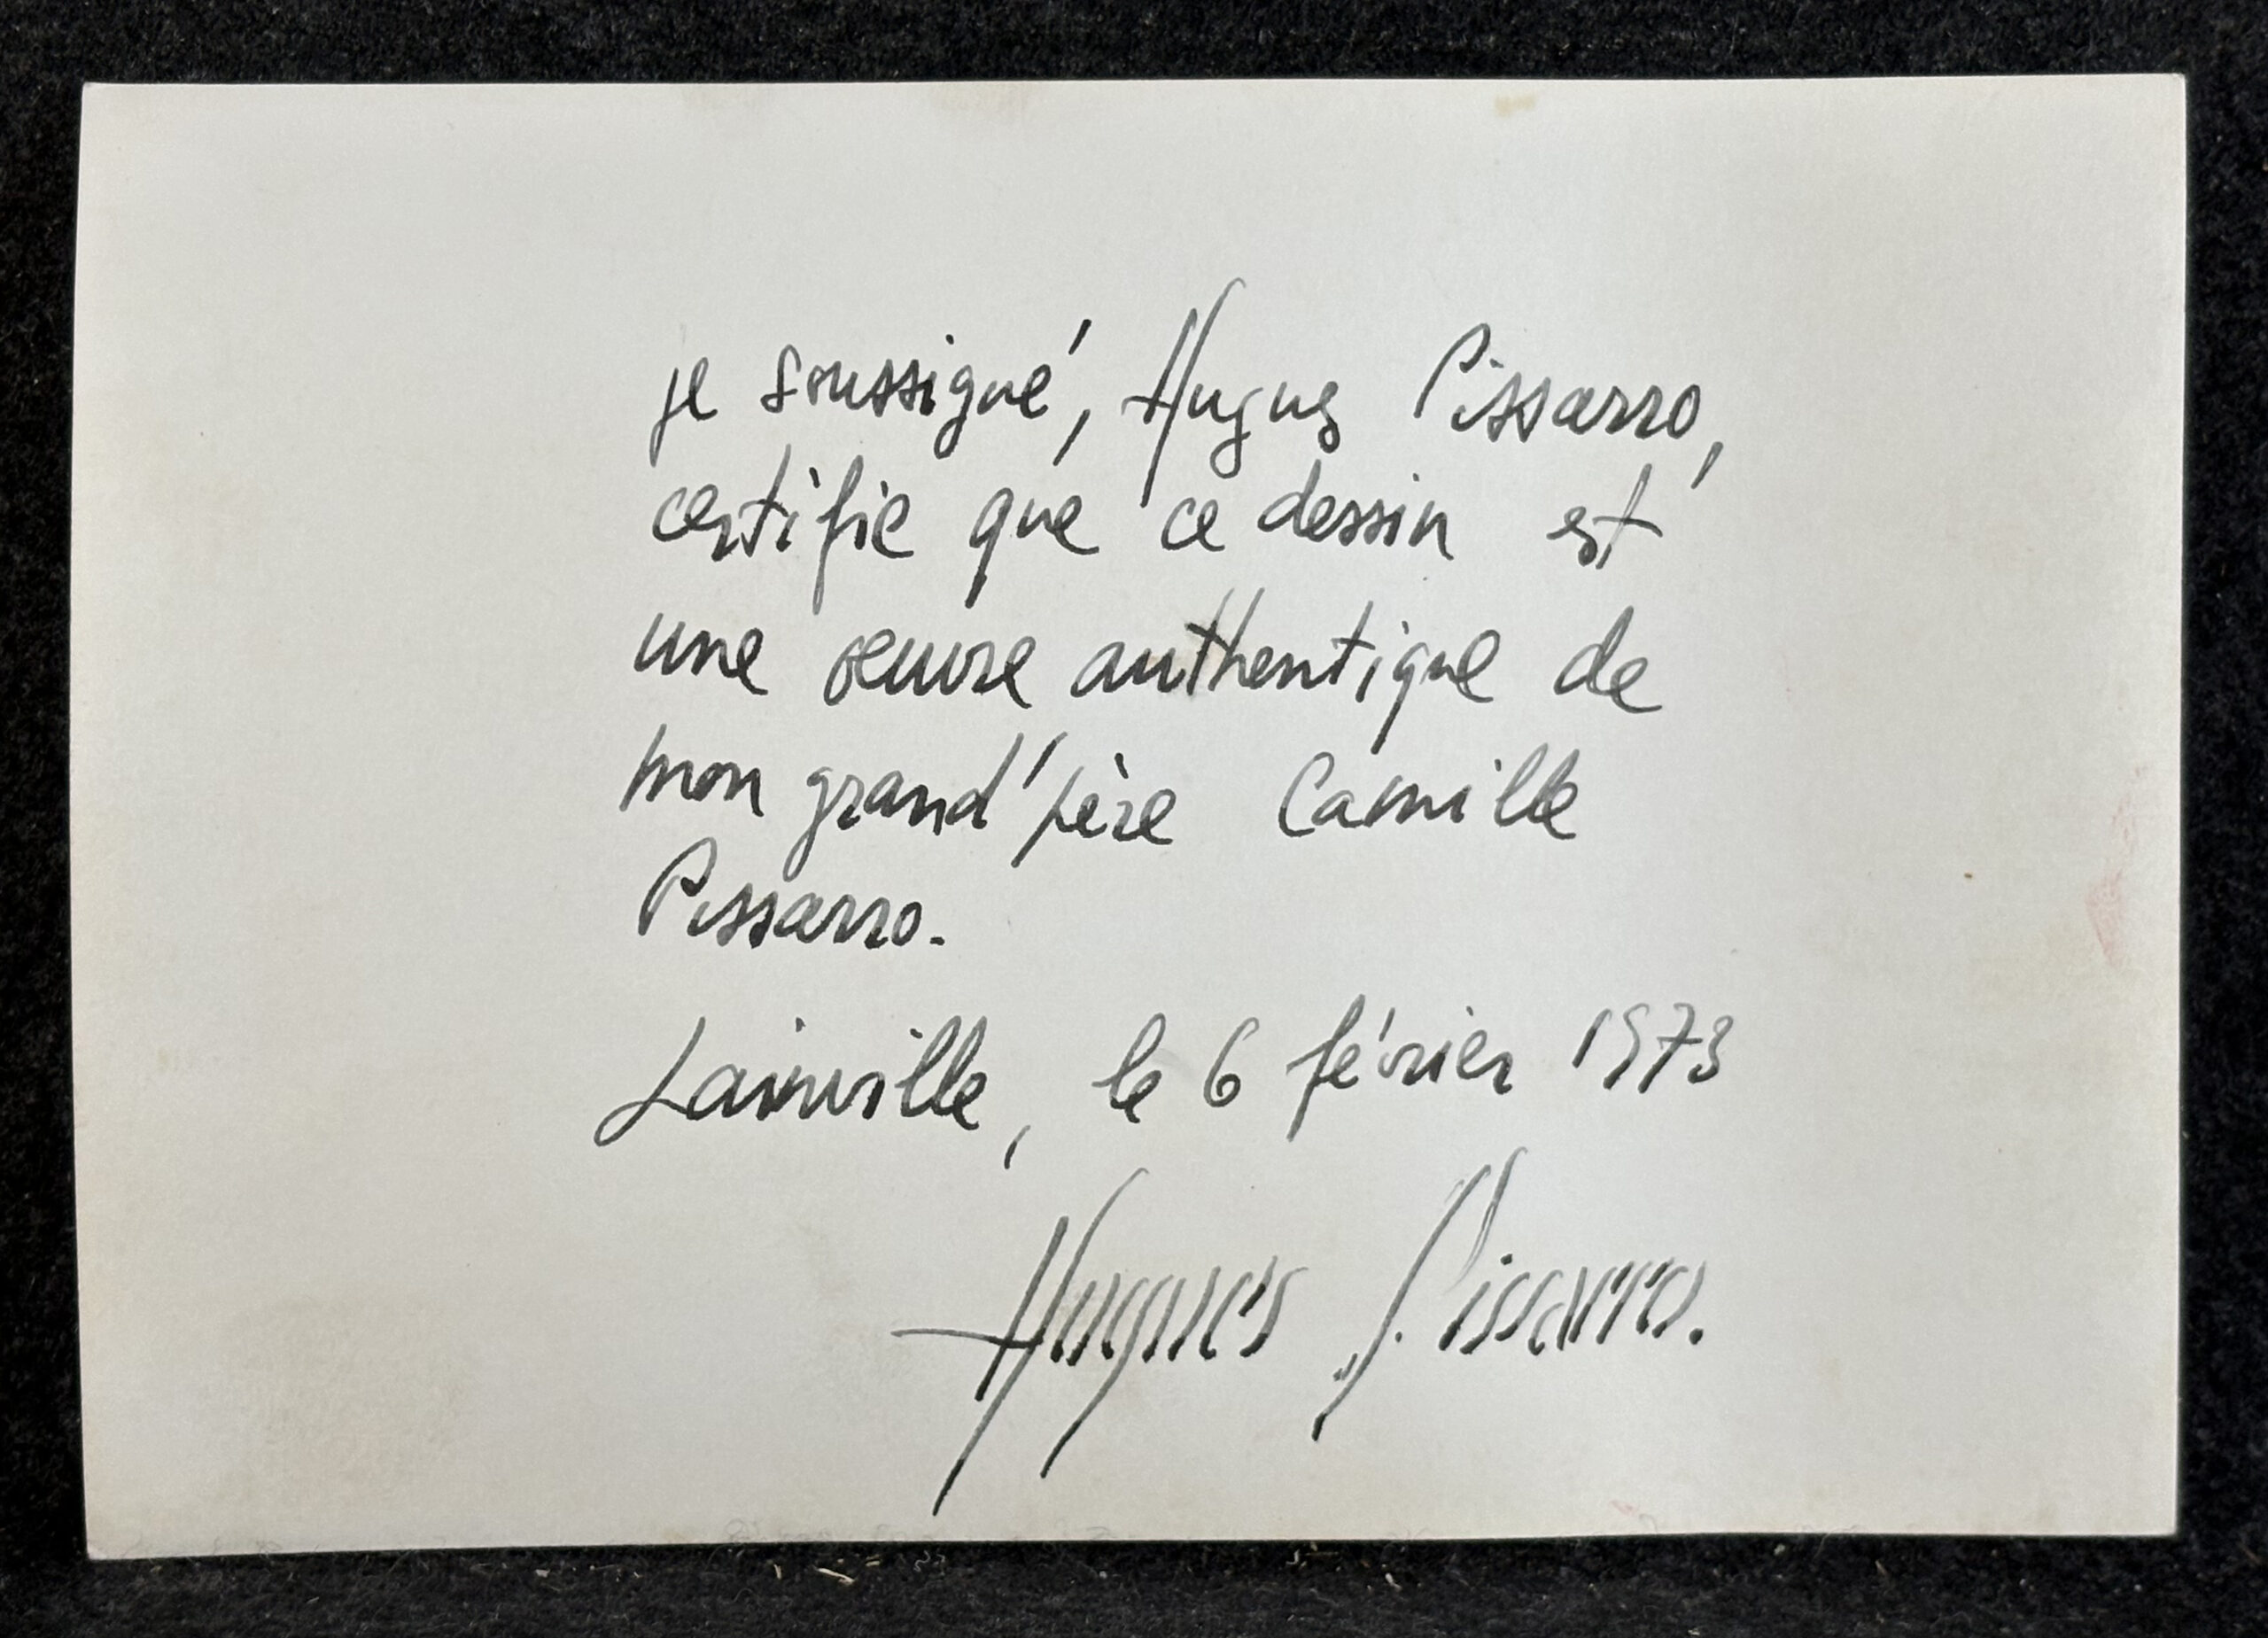 je soussigné, Hugues Pissarro,
certifie que ce dessin est
une oeuvre authentique de
mon grand'père Camille
Pissarro.
Lainville, le 6 février 1973
Hugues Pissarro.